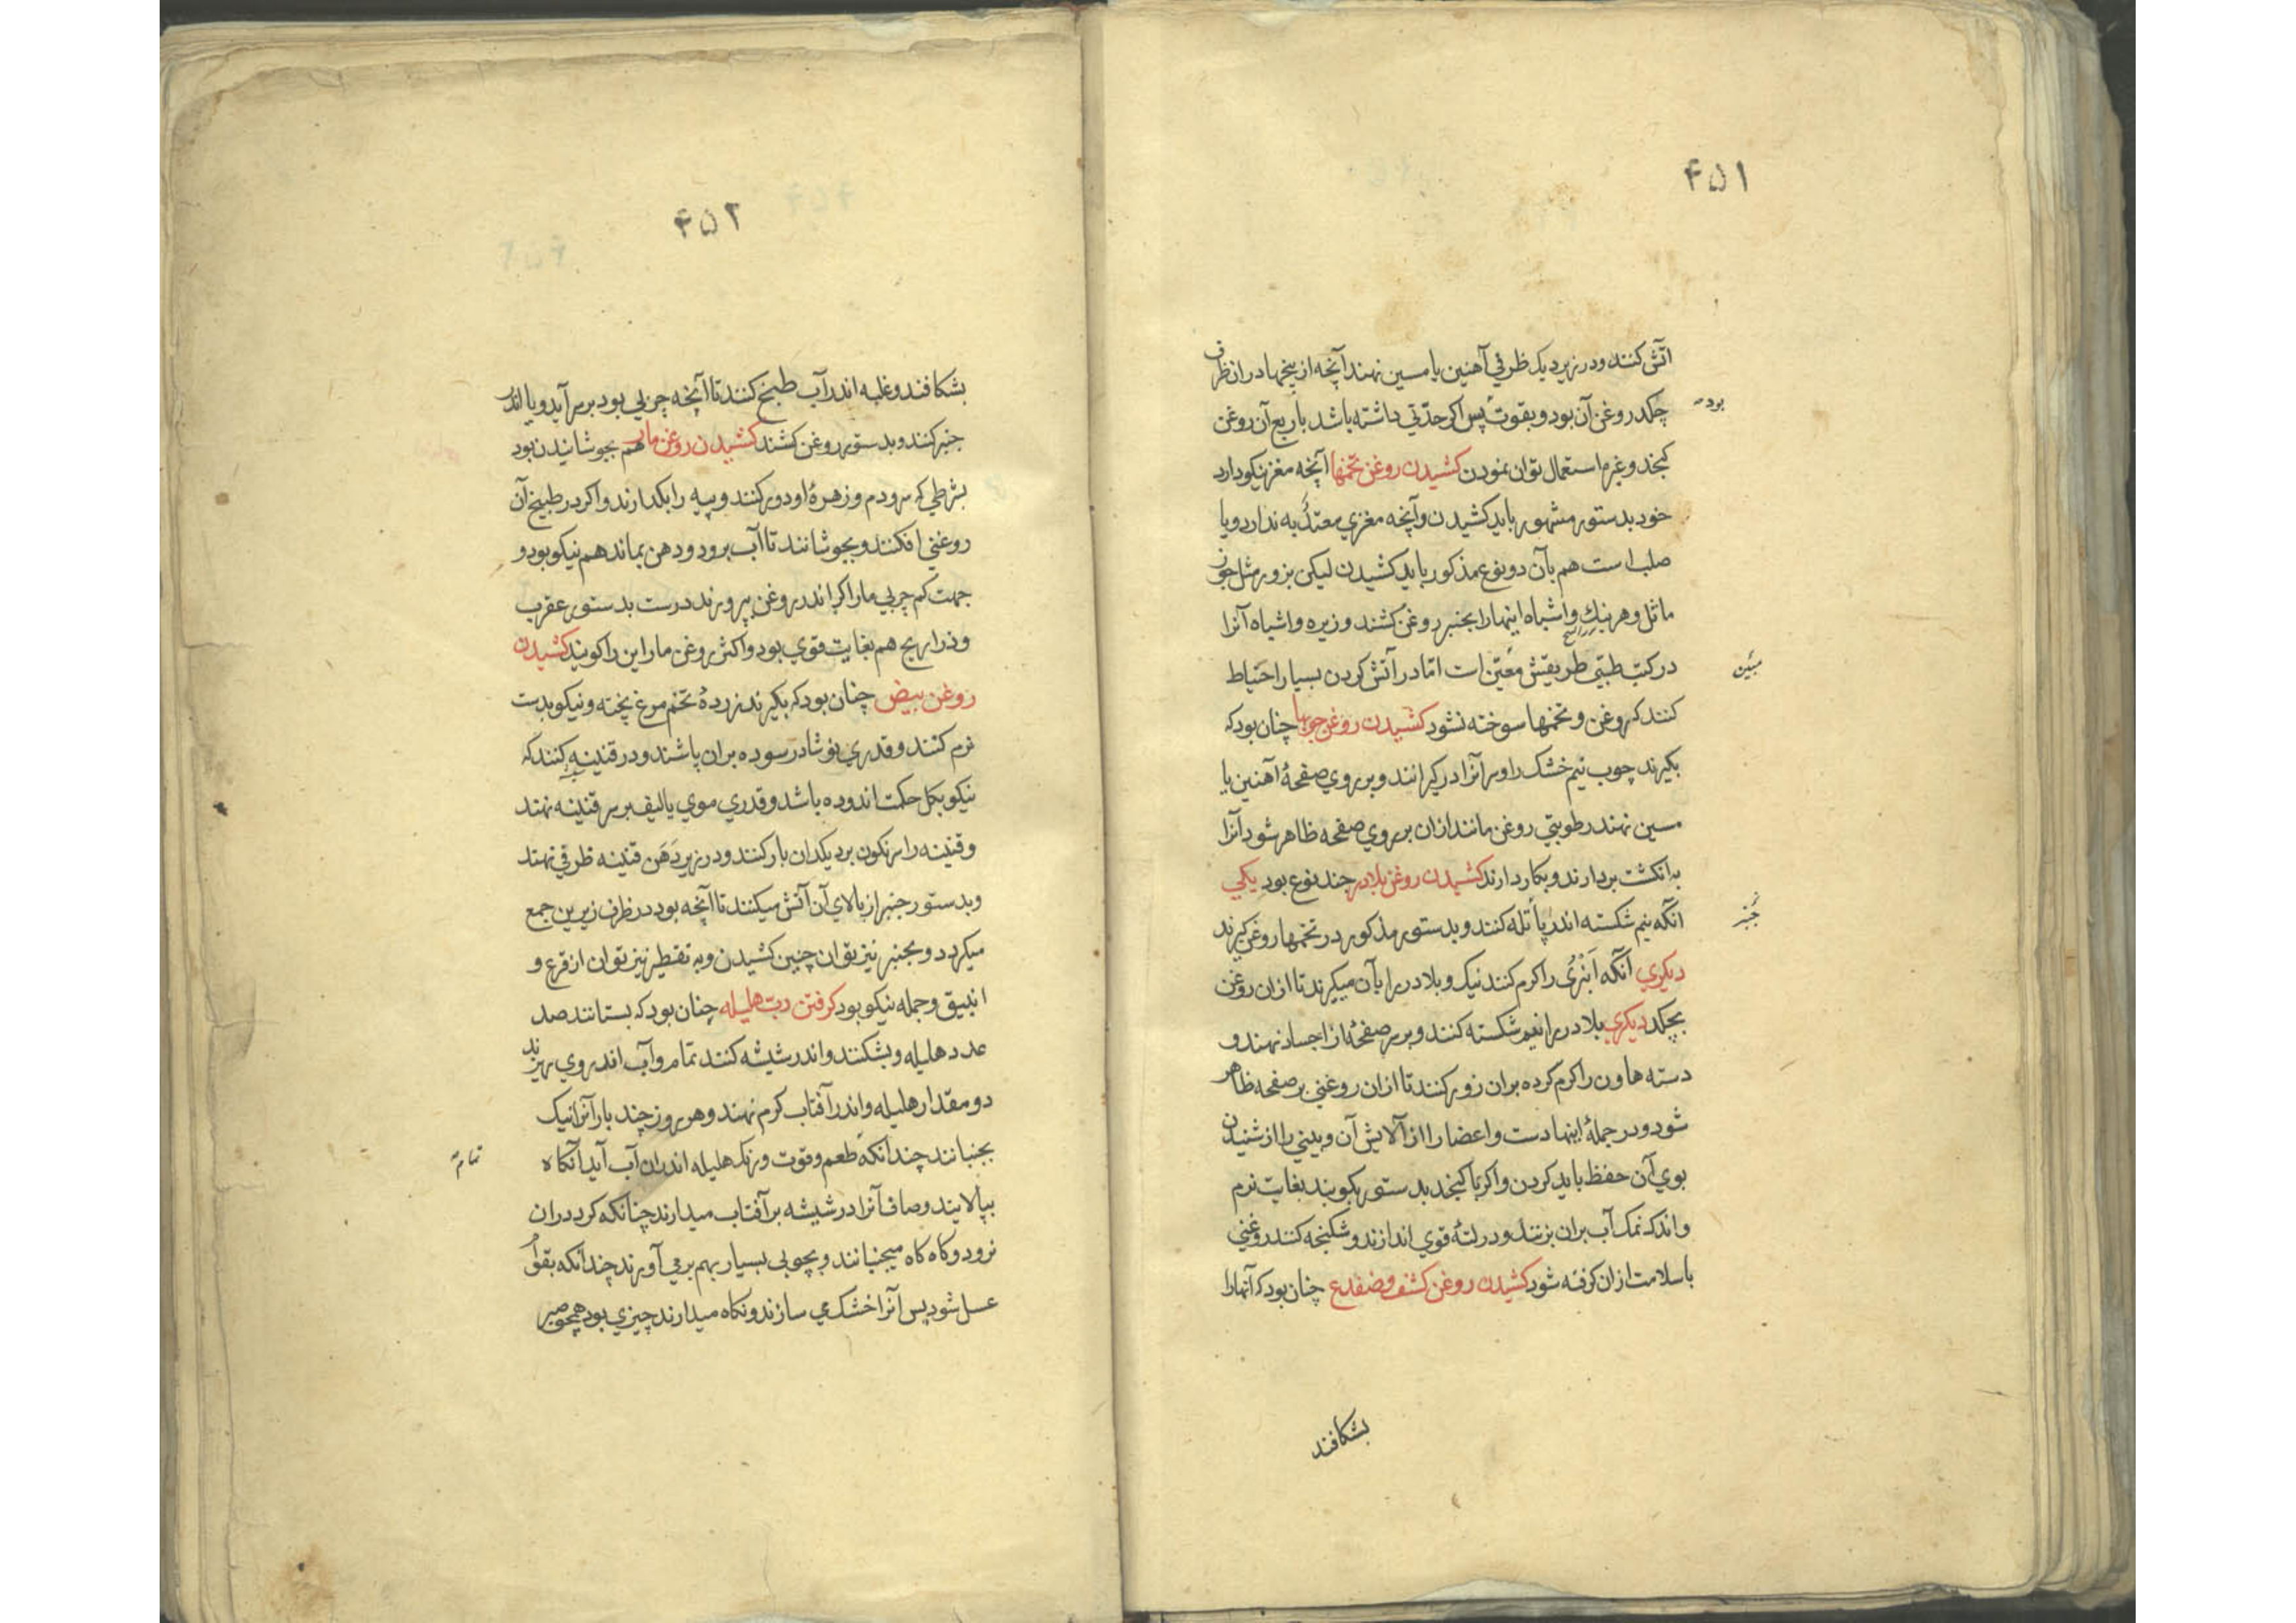 ۴۵۱
آتش کنند و در زیر دیک ظرفي آهنین یا مسین نهند آنچه از بیخها در ان ظرف
چکد روغن آن بود و بقوت پس اکر حدّتي داشته باشد با ربع آن روغن
بوده
کنجد و غیره استعمال توان نمودن کشیدن روغن تخمها آنچه مغز نیکو دارد
خود بدستور مشهور باید کشیدن و آنچه مغزي معتدٌ به ندارد و یا
صلب است هم بآن دو نوع مذکور باید کشیدن لیکن بزور مثل جوز
ماثل و هربنك و اشباه اینها را بجنبر روغن کشند و زیره و اشباه آنرا
در کتب طبّي طریقتش معّین است امّا در آتش کردن بسیار احتیاط
مبیّن
کنند که روغن و تخمها سوخته نشود کشیدن روغن چوبها چنان بود که
بکیرند چوب نیم خشک را و سر آنرا در کیرانند و بر روي صفحهٔ آهنین یا
مسین نهند رطوبتي روغن مانند ازان بر روي صفحه ظاهر شود آنرا
به انکشت بردارند و بکار دارند کشیدن روغن بلادر چند نوع بود یکي
آنکه نیم شکسته اندر پاتله کنند و بدستور مذکور در تخمها روغن کیرند
جنبر
دیکري آنکه انبری را کرم کنند نیک و بلادر را بآن میکیرند تا ازان روغن
بچکد دیکري بلادر را نیم شکسته کنند و بر سر صفحهٔ از اجساد نهند و
دسته هاون را کرم کرده بران زور کنند تا ازان روغني بر صفحه ظاهر
شود و در جملهٔ اینها دست و اعضا را از آلایش آن و بیني را از شنیدن
بوي آن حفظ باید کردن و اکر با کنجد بدستور بکوبند بغایت نرم
و اندک نمک آب بران بزنند و در لتهٔ قوي اندازند و شکنجه کنند روغني
با سلامت ازان کرفته شود کشیدن روغن کشف و ضفدع چنان بود که آنها را
بشکافند
۴۵۲
بشکافند و غلبه اندر آب طبخ کنند تا آنچه چربي بود بر سر آید و یا اندر
جنبر کنند و بدستور روغن کشند کشیدن روغن مار هم بجوشانیدن بود
بشرطي که سر و دم و زهرهٔ او دور کنند و پیه را بکدارند و اکر در طبیخ آن
روغني افکنند و بجوشانند تا آب برود و دهن بماند هم نیکو بود و
جهت کم چربي مار اکر اندر روغن بپرورند درست بدستور عقرب
و ذراریح هم بغایت قوي بود و اکثر روغن مار این را کویند کشیدن
روغن بیض چنان بود که بکیرند زردهٔ تخم مرغ پخته و نیکو بدست
نرم کنند و قدري نوشادر سوده بران پاشند و در قنینه کنند که
نیکو بکل حکمت اندوده باشد و قدري موي یا لیف بر سر قنینه نهند
و قنینه را سرنکون بر دیکدان بار کنند و در زیر دهن قنینه ظرفي نهند
و بدستور جنبر از بالاي آن آتش میکنند تا آنچه بود در ظرف زیرین جمع
میکردد و بجنبر نیز توان چنین کشیدن و به تقطیر نیز توان از قرع و
انبیق و جمله نیکو بود کرفتن رب هلیله چنان بود که بستانند صد
عدد هلیله و بشکنند و اندر شیشه کنند تمام و آب اندر وي ریزند
دو مقدار هلیله و اندر آفتاب کرم نهند و هر روز چند بار آنرا نیک
بجنبانند چندانکه طعم و قوت و رنک هلیله اندران آب آید آنکاه
تمام
بپالایند و صاف آنرا در شیشه بر آفتاب میدارند چنانکه کرد دران
نرود و کاه کاه میجنبانند و بچوبي بسیار بهم بر مي آورند چندانکه بقوام
عسل شود پس آنرا خشک مي سازند و نکاه میدارند چیزي بود همچو صبر